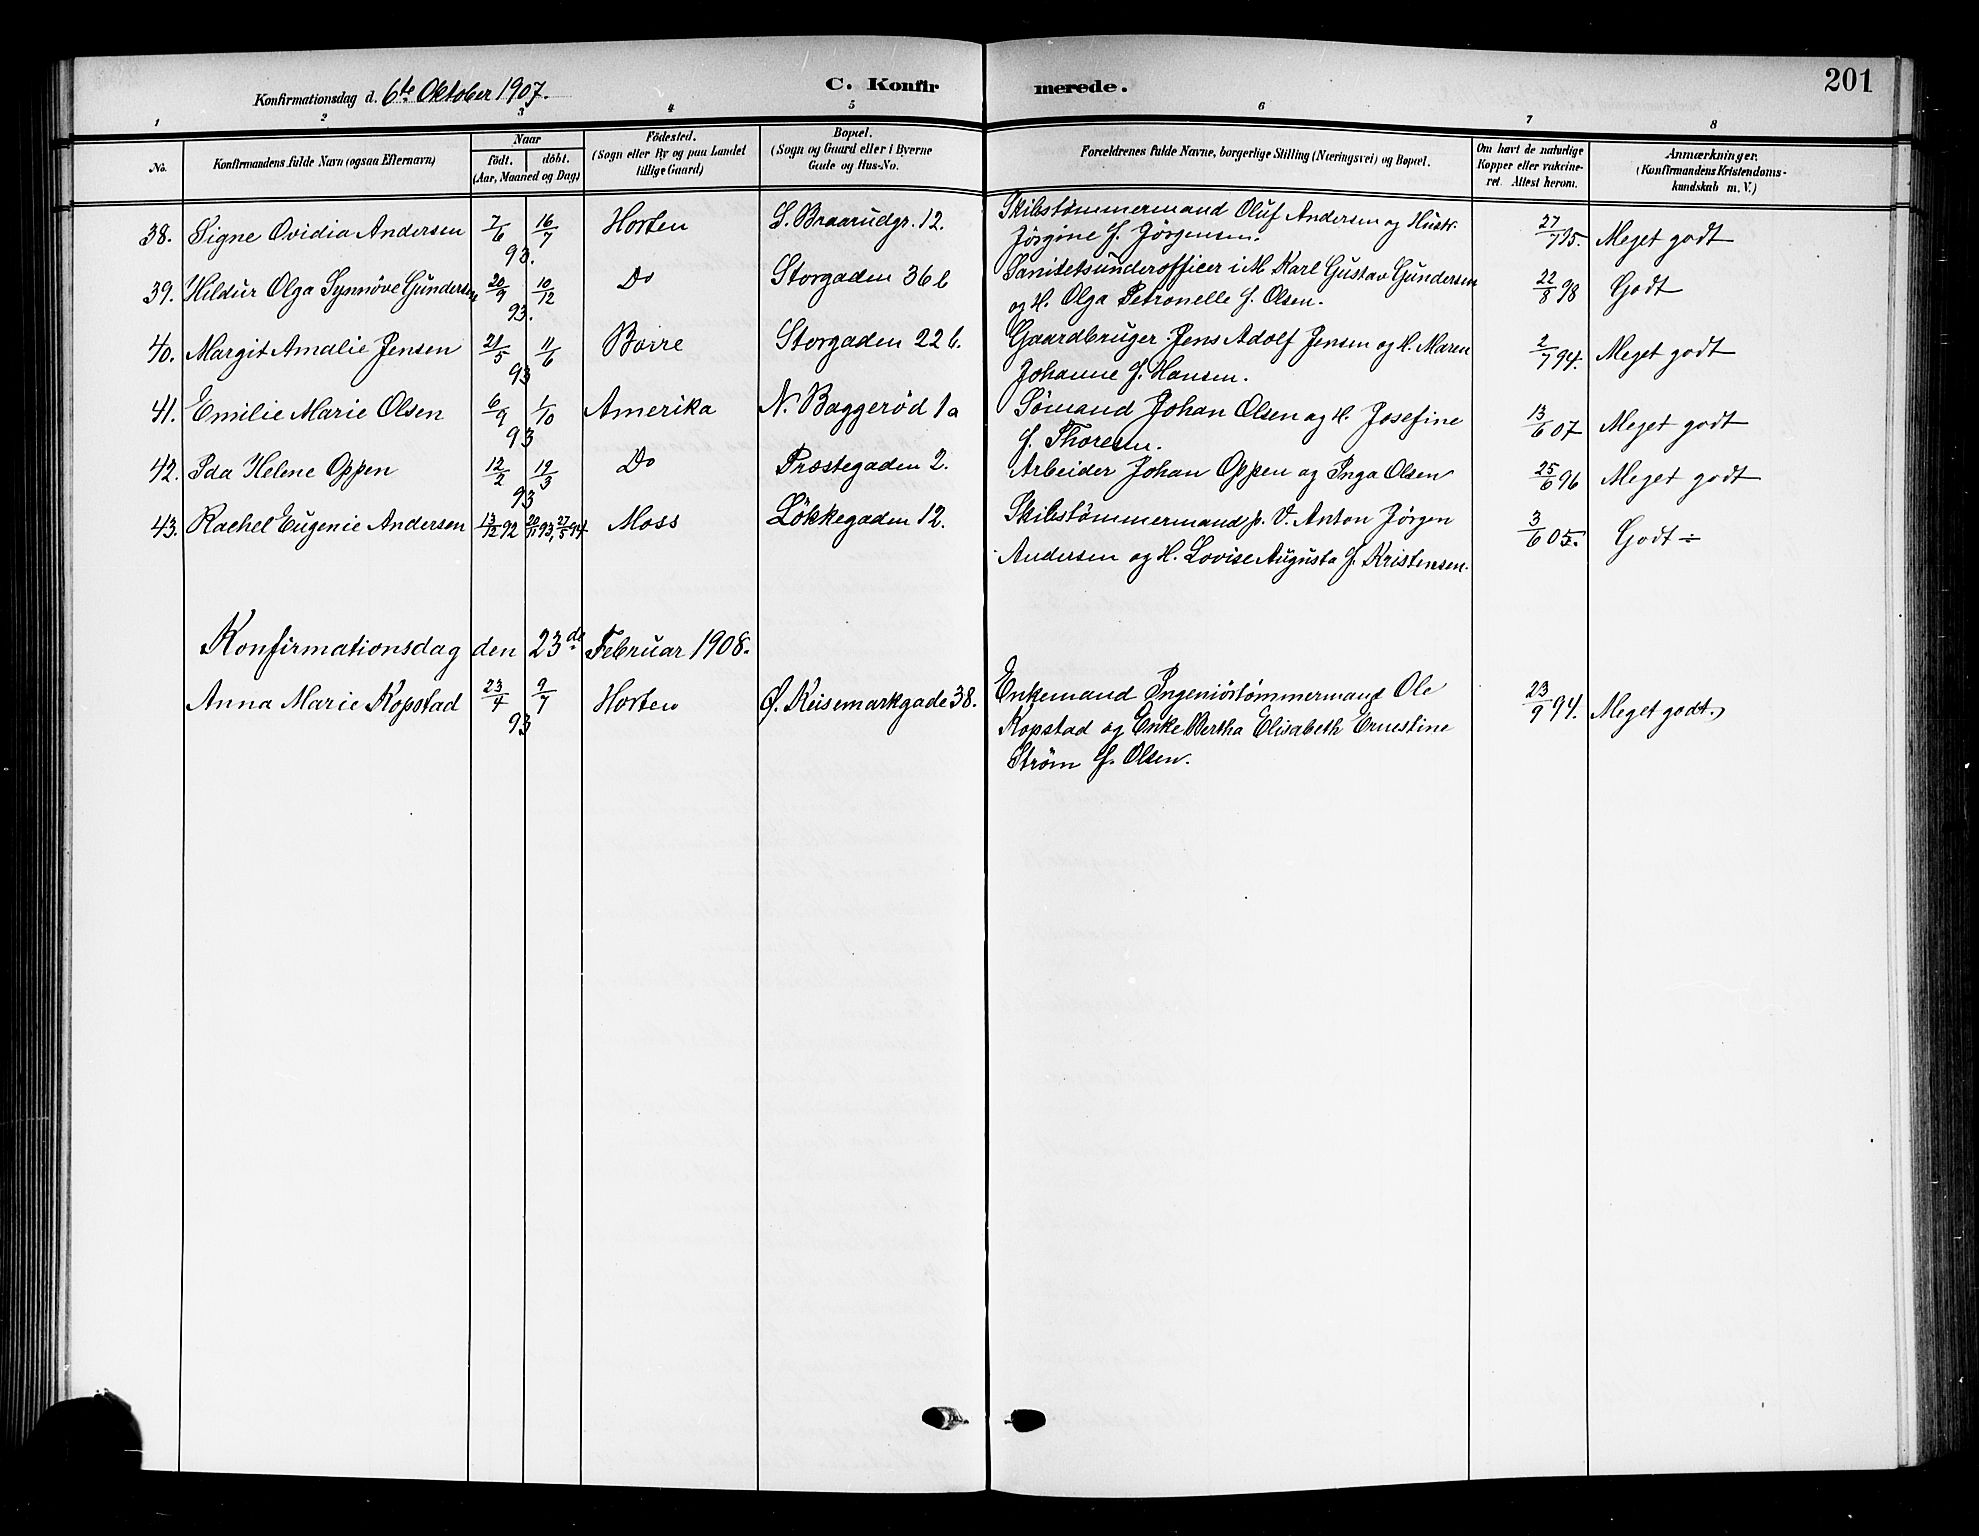 201
Konfirmationsdag d. 6te Oktober 1907.
C. Konfirmerede.
1 2 3 4 5 6 7 8
No. Konfirmandens fulde Navn (ogsaa Efternavn) Naar födt. döbt. (Aar, Maaned og Dag) Födested. (Sogn eller By og paa Landet tillige Gaard) Bopæl. (Sogn og Gaard eller i Byerne Gade og Hus-No. Forældrenes fulde Navne, borgerlige Stilling (Næringsvei) og Bopæl. Om havt de naturlige Kopper eller vakcineret. Attest herom. Anmærkninger. (Konfirmandens Kristendomskundskab m. V.)
38. Signe Ovidia Andersen 7/6 16/7 93. Horten S. Braarudgr. 12. Skibstømmermand Oluf Andersen og Hustr. 27/7 95. Meget godt
Jørgine f. Jørgensen.
39. Hildur Olga Synnøve Gundersen 20/9 10/12 93. Do Storgaden 36 b Sanitetsunderofficer i M. Karl Gustav Gundersen 22/8 98 Godt
og H. Olga Petronelle f. Olsen.
40. Margit Amalie Jensen 21/5 11/6 93 Borre Storgaden 22 b. Gaardbruger Jens Adolf Jensen og H. Maren 2/7 94. Meget godt
Johanne f. Hansen.
41. Emilie Marie Olsen 6/9 1/10 93 Amerika N. Baggerød 1a Sømand Johan Olsen og H. Josefine 13/6 07 Meget godt
f. Thoresen.
42. Ida Helene Oppen 12/2 19/3 93 Do Præstegaden 2. Arbeider Johan Oppen og Inga Olsen 25/6 96 Meget godt
43. Rachel Eugenie Andersen 13/12 92 93, 27/5 94 Moss Løkkegaden 12. Skibstømmermand p. V. Anton Jørgen 3/6 05. Godt ÷
Andersen og H. Lovise Augusta f. Kristensen.
Konfirmationsdag den 23de Februar 1908.
Anna Marie Kopstad 23/4 9/7 93 Horten Ø. Keisemarkgade 38. Enkemand Ingeniørtømmermand Ole 23/9 94. Meget godt.
Kopstad og Enke Bertha Elisabeth Ernestine
Strøm f. Olsen.